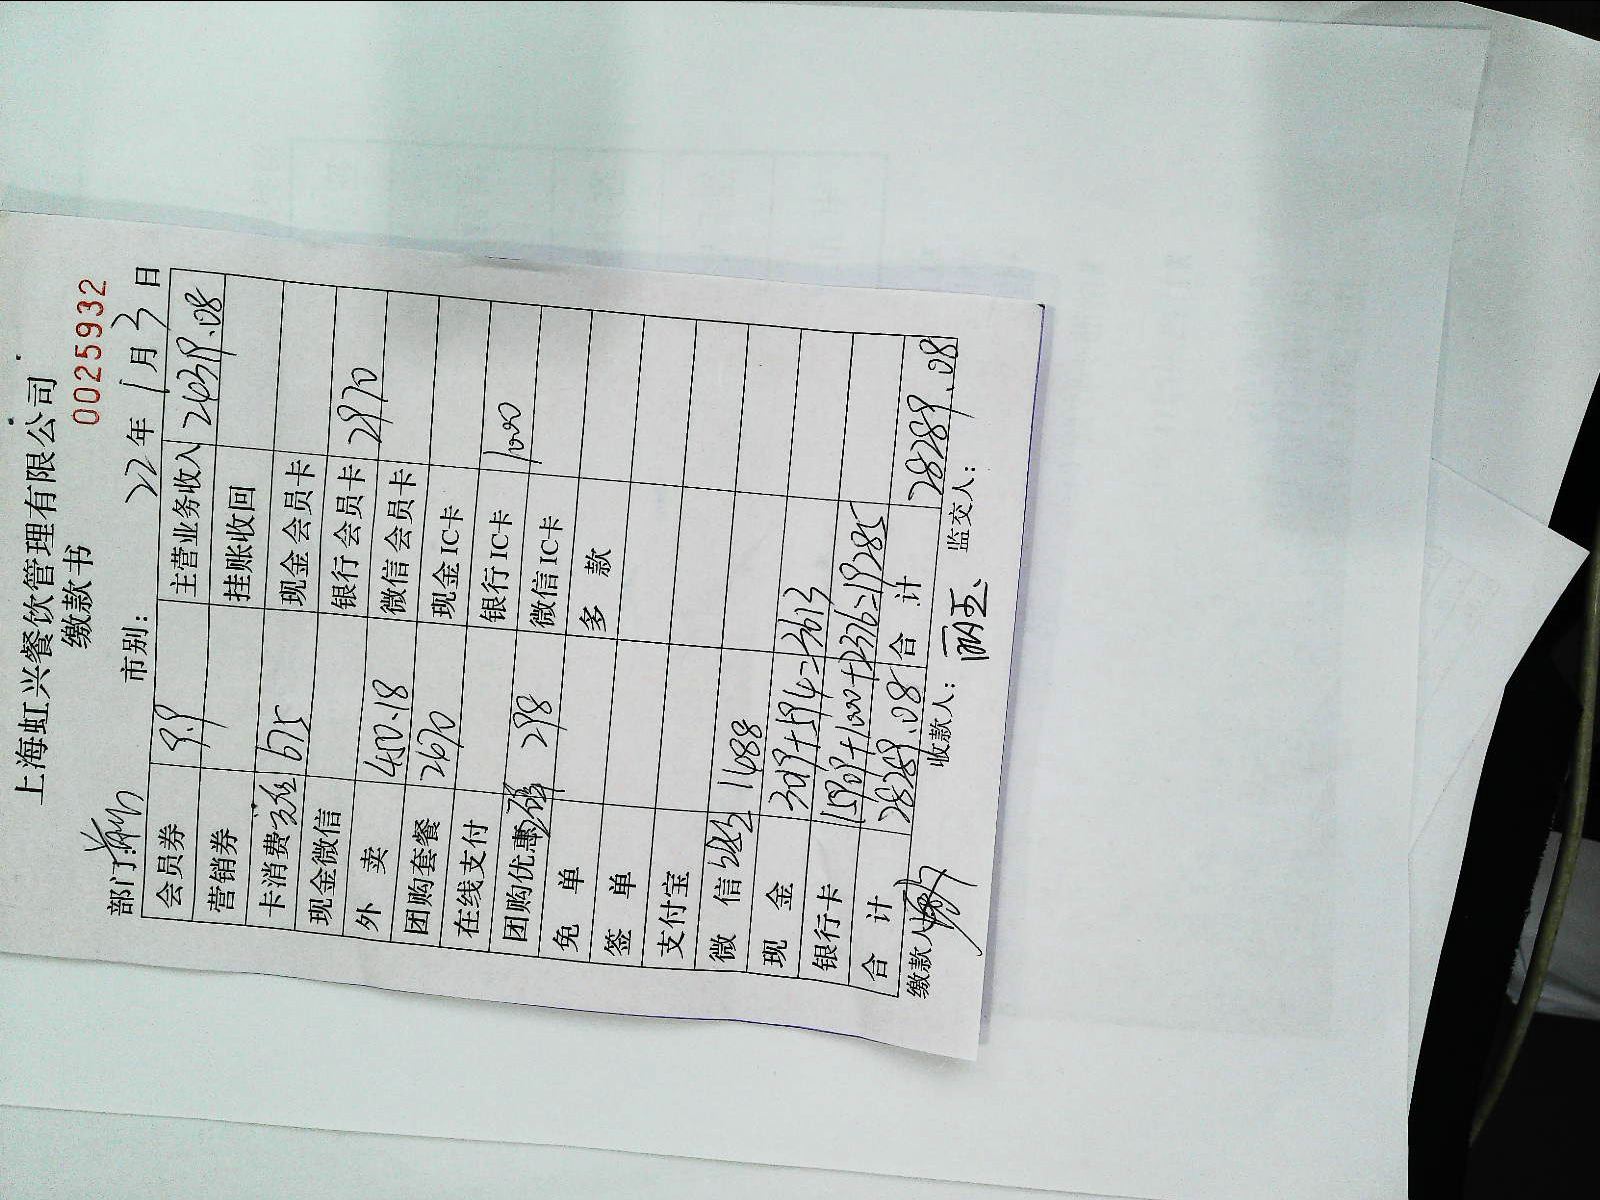 上海虹兴餐饮管理有限公司
缴款书
0025932
部门: 市别: 22年1月3日
会员券 99 主营业务收入 24319.08
营销券 挂账收回
卡消费 675 现金会员卡
现金微信 银行会员卡 2970
外卖 400.18 微信会员卡
团购套餐 2670 现金IC卡
在线支付 银行IC卡 1000
团购优惠 298 微信IC卡
免单 多款
签单
支付宝
微信 1488
现金 3019+594=3613
银行卡 15909+1000+2376=19285
合计 28289.08 合计 28289.08
缴款人: 收款人: 丽玉 监交人: